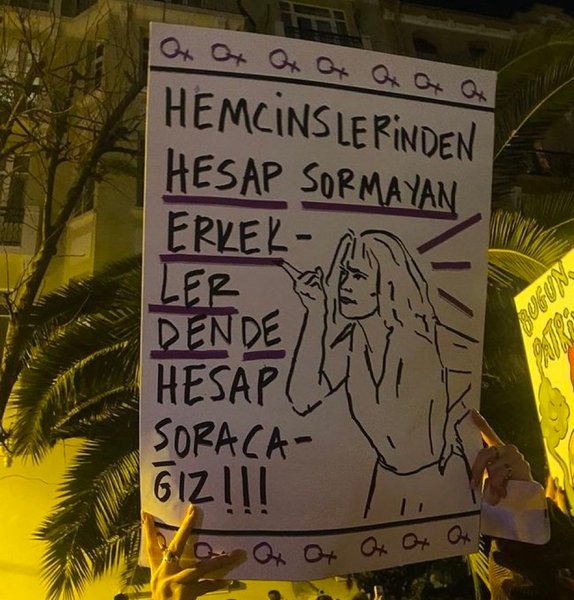 HEMCİNSLERİNDEN
HESAP SORMAYAN
ERKEK-
LER
DEN DE
HESAP
SORACA-
ĞIZ!!!
BUGÜN